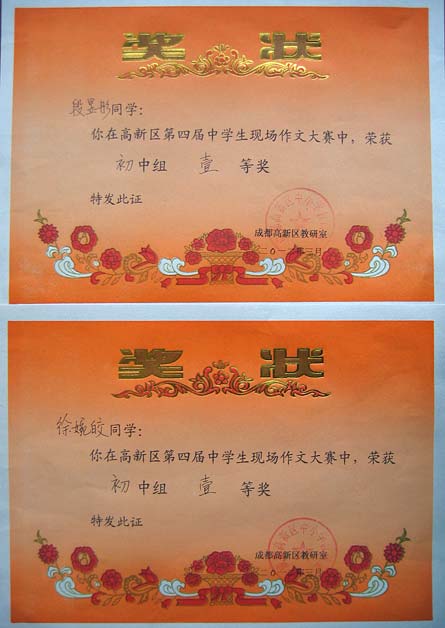 奖 状
段昱彤同学:
你在高新区第四届中学生现场作文大赛中，荣获
初中组 壹 等奖
特发此证
成都高新区教研室
奖 状
徐婉皎同学:
你在高新区第四届中学生现场作文大赛中，荣获
初中组 壹 等奖
特发此证
成都高新区教研室